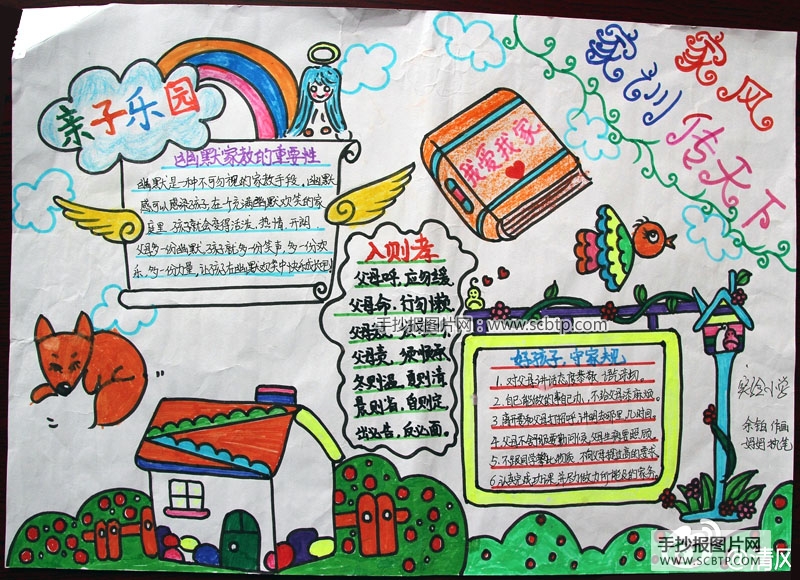 亲子乐园
家风
家训
传天下
我爱我家
幽默家教的重要性
幽默是一种不可忽视的家教手段,幽默
感可以感染孩子,在一个充满幽默欢笑的家
庭里,孩子就会变得活泼、热情、开朗。
父母多一份幽默,孩子就多一份笑声,多一份欢
乐,多一份力量,让孩子在幽默欢笑中快乐成长吧!
入则孝
父母呼,应勿缓,
父母命,行勿懒。
父母
父母责,须顺承
冬则温,夏则凊
晨则省,昏则定
出必告,反必面。
手抄报图片网:www.scbtp.com
好孩子,守家规
1.对父母讲话态度恭敬
2.自己能做的事自己办,不给父母添麻烦。
3.离开家和父母打招呼,讲明去哪里、几时回。
4.父母不舒服要勤问候,父母生病要照顾。
5.不跟同学攀比物质,不向父母提过高的要求
6.认真完成功课,并尽力做力所能及的家务。
实验小学
作画
妈妈执笔
手抄报图片网
WWW.SCBTP.COM
清风